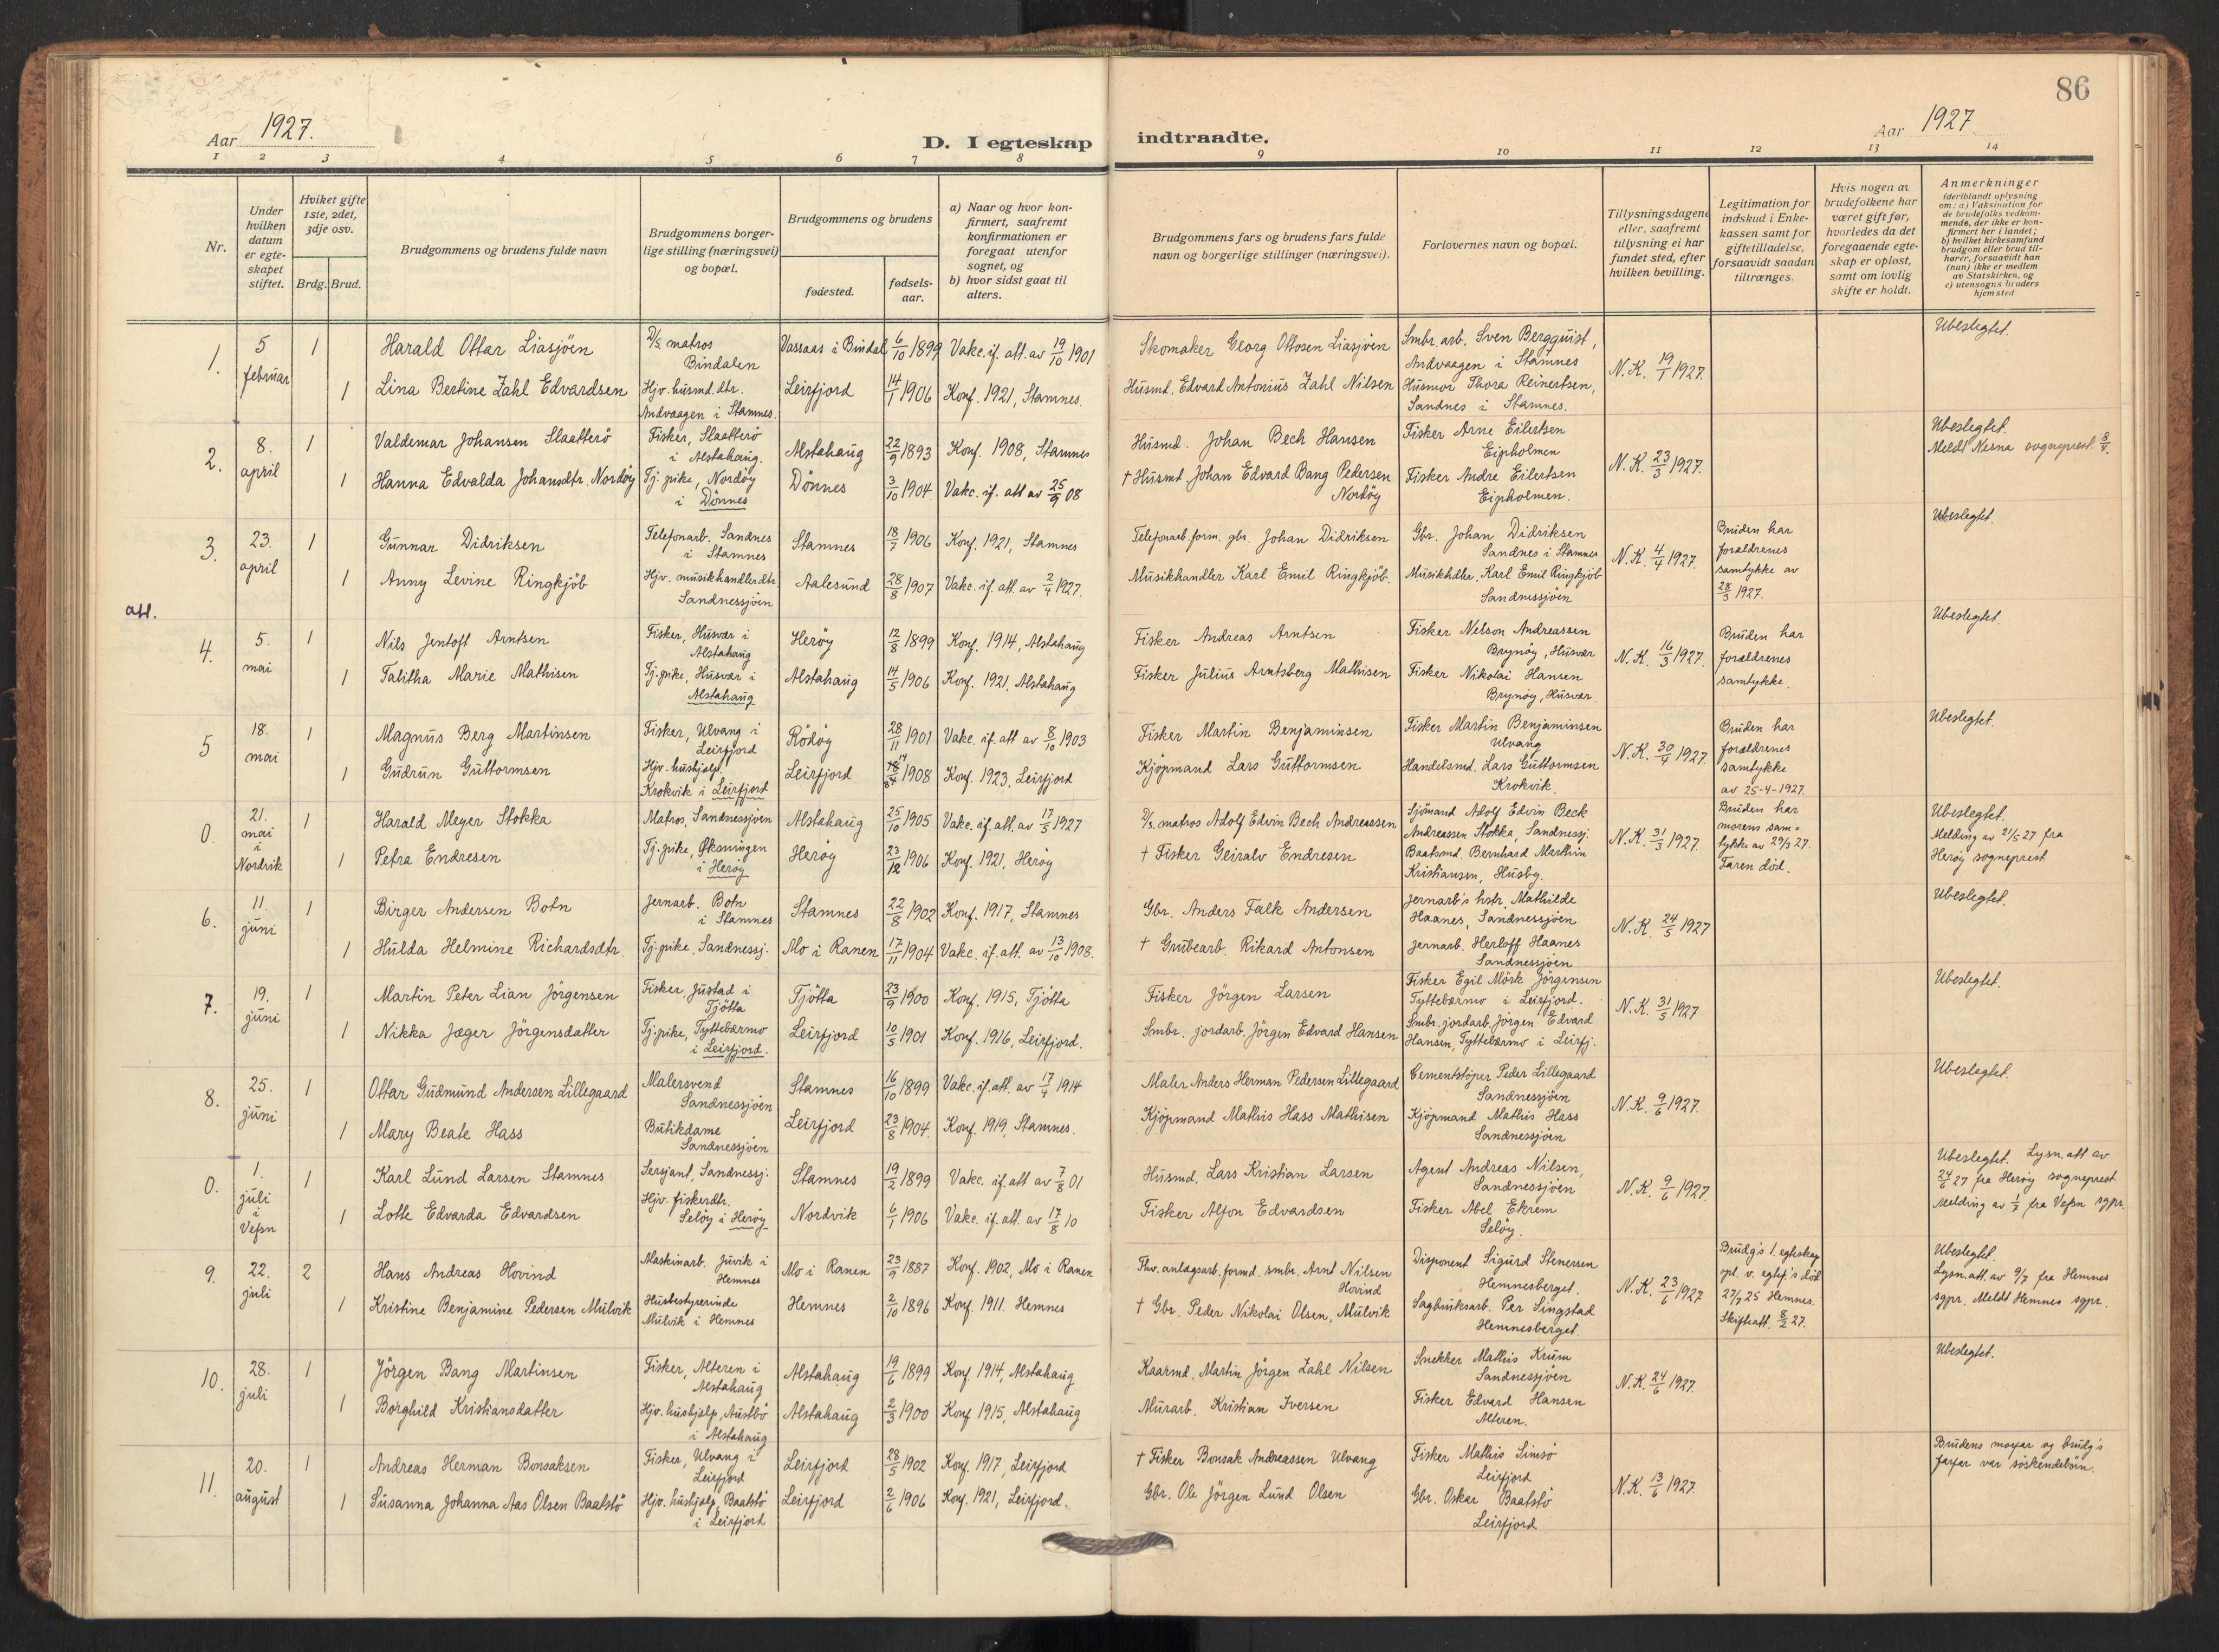 86
Aar 1927.
D. I egteskap indtraadte.
Aar 1927
1 2 3 4 5 6 7 8 9 10 11 12 13 14
Nr.
Under hvilken datum er egteskapet stiftet.
Hviket gifte 1ste, 2det, 3dje osv.
Brdg. Brud.
Brudgommens og brudens fulde navn
Brudgommens borgerlige stilling (næringsvei) og bopæl.
Brudgommens og brudens
fødested.
fødselsaar.
a) Naar og hvor konfirmert, saafremt konfirmationen er foregaat utenfor sognet, og
b) hvor sidst gaat til alters.
Brudgommens fars og brudens fars fulde navn og borgerlige stillinger (næringsvei).
Forlovernes navn og bopæl.
Tillysningsdagene eller, saafremt tillysning ei har fundet sted, efter hvilken bevilling.
Legitimation for indskud i Enkekassen samt for giftetilladelse, forsaavidt saadan tiltrænges.
Hvis nogen av brudefolkene har været gift før, hvorledes da det foregaaende egteskap er opløst, samt om lovlig skifte er holdt.
Anmerkninger (deriblandt oplysning om: a) Vaksination for de brudefolks vedkommende, der ikke er konfirmert her i landet; b) hvilket kirkesamfund brudgom eller brud tilhører, forsaavidt han (hun) ikke er medlem av Statskirken, og c) utensogns bruders hjemsted
1. 5 februar 1 Harald Ottar Liasjöen D/s matros Bindalen Vassaas i Bindal 6/10 1899 Vakc. if. att. av 19/10 1901 Skomaker Georg Ottosen Liasjöen Smbr. arb. Sven Bergquist, Andvaagen i Stamnes N.K. 19/1 1927. Ubeslegtet.
1 Lina Bertine Zahl Edvardsen Hjv. husmd. dtr. Andvaagen i Stamnes. Leirfjord 14/1 1906 Konf. 1921, Stamnes. Husmd. Edvard Antonius Zahl Nilsen Husmor Thora Reinertsen, Sandnes i Stamnes.
2. 8. april 1 Valdemar Johansen Slaatterö Fisker, Slaatterö i Alstahaug. Alstahaug 22/9 1893 Konf. 1908, Stamnes Husmd. Johan Bech Hansen Fisker Arne Eilertsen Eipholmen N.K. 23/3 1927. Ubeslegtet. Meldt Nesna sogneprest 8/4.
1 Hanna Edvalda Johansdtr. Nordöy Tj. pike, Nordöy i Dönnes Dönnes 3/10 1904. Vakc. if. att av 25/9 08 † Husmt. Johan Edvard Bang Pedersen Nordöy Fisker Andre Eilertsen Eipholmen.
3. 23. april 1 Gunnar Didriksen Telefonarb. Sandnes i Stamnes Stamnes 18/7 1906 Konf. 1921, Stamnes Telefonarb. form. gbr. Johan Didriksen Gbr. Johan Didriksen Sandnes i Stamnes N.K. 4/4 1927. Bruden har forældrenes samtykke av 28/3 1927. Ubeslegtet.
1 Anny Levine Ringkjöb Hjv. musikhandlerdtr Sandnessjöen Aalesund 28/8 1907 Vakc. if. att. av 2/4 1927. Musikhandler Karl Emil Ringkjöb. Musikhdler. Karl Emil Ringkjöb Sandnessjöen
att.
4. 5. mai 1 Nils Jentoft Arntsen Fisker, Husvær i Alstahaug Heröy 12/8 1899 Konf. 1914, Alstahaug Fisker Andreas Arntsen Fisker Nelson Andreassen Brynöy, Husvær N.K. 16/3 1927. Bruden har forældrenes samtykke. Ubeslegtet.
1 Talitha Marie Mathisen Tj. pike, Husvær i Alstahaug Alstahaug 14/5 1906 Konf. 1921, Alstahaug Fisker Julius Arntsberg Mathisen Fisker Nikolai Hansen Brynöy, Husvær.
5 18. mai 1 Magnus Berg Martinsen Fisker, Ulvang i Leirfjord Rödöy 28/11 1901 Vakc. if. att av 8/10 1903 Fisker Martin Benjaminsen Fisker Martin Benjaminsen Ulvang N.K. 30/4 1927. Bruden har forældrenes samtykke av 25-4-1927. Ubeslegtet.
1 Gudrun Guttormsen Hjv. hushjælp, Krokvik i Leirfjord Leirfjord 1908 Konf. 1923, Leirfjord Kjöpmand Lars Guttormsen Handelsmd. Lars Guttormsen Krokvik.
0. 21. mai i Nordvik 1 Harald Meyer Stokka Matros, Sandnessjöen Alstahaug 25/10 1905 Vakc. if. att. av 17/5 1927 D/s. matros Adolf Edvin Bech Andreassen Sjömand Adolf Edvin Beck Andreassen Stokka, Sandnessj. N.K. 31/3 1927. Bruden har morens samtykke av 29/3 27. Faren död. Ubeslegtet. Melding av 21/5 27 fra Heröy sogneprest
1 Petra Endresen Tj. pike, Öksningen i Heröy Heröy 23/12 1906 Konf. 1921, Heröy † Fisker Geiralv Endresen Baatsmd. Bernhard Marthin Kristiansen, Husby.
6. 11. juni 1 Birger Andersen Botn Jernarb. Botn i Stamnes Stamnes 22/8 1902 Konf. 1917, Stamnes Gbr. Anders Falk Andersen Jernarb's hstr. Mathilde Haanes, Sandnessjöen N.K. 24/5 1927 Ubeslegtet.
1 Hulda Helmine Richardsdtr. Tj. pike, Sandnessj. Mo i Ranen 17/11 1904 Vakc. if. att. av 13/10 1908. † Grubearb. Rikard Antonsen Jernarb. Herloff Haanes Sandnessjöen
7. 19. juni 1 Martin Peter Lian Jörgensen Fisker, Justad i Tjötta Tjötta 23/9 1900 Konf. 1915, Tjötta Fisker Jörgen Larsen Fisker Egil Mörk Jörgensen Tyttebærmo i Leirfjord. N.K. 31/5 1927 Ubeslegtet.
1 Nikka Jæger Jörgensdatter Tj. pike, Tyttebærmo i Leirfjord. Leirfjord 10/5 1901 Konf. 1916, Leirfjord. Smbr. jordarb. Jörgen Edvard Hansen Smbr. jordarb. Jörgen Edvard Hansen, Tyttebærmo i Leirfj.
8. 25. juni 1 Ottar Gudmund Andersen Lillegaard Malersvend Sandnessjöen Stamnes 16/10 1899 Vakc. if. att. av 17/4 1914 Maler Anders Herman Pedersen Lillegaard Cementstöper Peder Lillegaard Sandnessjöen N.K. 9/6 1927. Ubeslegtet.
1 Mary Beate Hass Butikdame Sandnessjöen Leirfjord 23/8 1904. Konf. 1919, Stamnes. Kjöpmand Mathis Hass Mathisen Kjöpmand Mathis Hass Sandnessjöen
0. 1. juli i Vefsn 1 Karl Lund Larsen Stamnes Sersjant, Sandnessj. Stamnes 19/2 1899 Vakc. if. att av 7/8 01 Husmd. Lars Kristian Larsen Agent Andreas Nilsen, Sandnessjöen N.K. 9/6 1927. Ubeslegtet. Lysn. att av 24/6 27 fra Heröy sogneprest Melding av 1/7 fra Vefsn sgpr.
1 Lotte Edvarda Edvardsen Hjv. fiskerdtr. Selöy i Heröy Nordvik 6/1 1906 Vakc. if. att. av 17/8 10 Fisker Alfon Edvardsen Fisker Abel Ekrem Selöy.
9. 22. juli 2 Hans Andreas Hovind Maskinarb. Juvik i Hemnes Mo i Ranen 23/9 1887 Konf. 1902, Mo i Ranen Fhv. anlægsarb. formd. smbr. Arnt Nilsen Hovind Disponent Sigurd Stenersen Hemnesberget. N.K. 23/6 1927 Brudg's 1. egteskap opl. v. egtef.'s död 27/7 25 Hemnes. Skifteatt. 8/2 27. Ubeslegtet. Lysn. att. av 9/7 fra Hemnes sgpr. Meldt Hemnes sgpr.
1 Kristine Benjamine Pedersen Mulvik Husbestyrerinde Mulvik i Hemnes Hemnes 2/10 1896 Konf. 1911. Hemnes † Gbr. Peder Nikolai Olsen, Mulvik Sagbruksarb. Per Singstad Hemnesberget.
10. 28. juli 1 Jörgen Bang Martinsen Fisker, Alteren i Alstahaug Alstahaug 19/6 1899 Konf. 1914, Alstahaug Kaarmd. Martin Jörgen Zahl Nilsen Snekker Mathis Krum Sandnessjöen N.K. 24/6 1927. Ubeslegtet.
1 Borghild Kristiansdatter Hjv. hushjælp, Austbö i Alstahaug Alstahaug 2/3 1900 Konf 1915, Alstahaug Murarb. Kristian Iversen Fisker Edvard Hansen Alteren.
11. 20. august 1 Andreas Herman Bonsaksen Fisker, Ulvang i Leirfjord Leirfjord 28/5 1902 Konf. 1917, Leirfjord † Fisker Bonsak Andreassen Ulvang Fisker Mathis Simsö Leirfjord N.K. 13/6 1927 Brudens morfar og brudg's farfar var söskendebörn.
1 Susanna Johanna Aas Olsen Baatstö Hjv. hushjælp, Baatstö i Leirfjord Leirfjord 2/6 1906 Konf. 1921, Leirfjord. Gbr. Ole Jörgen Lund Olsen Gbr. Oskar Baatstö Leirfjord